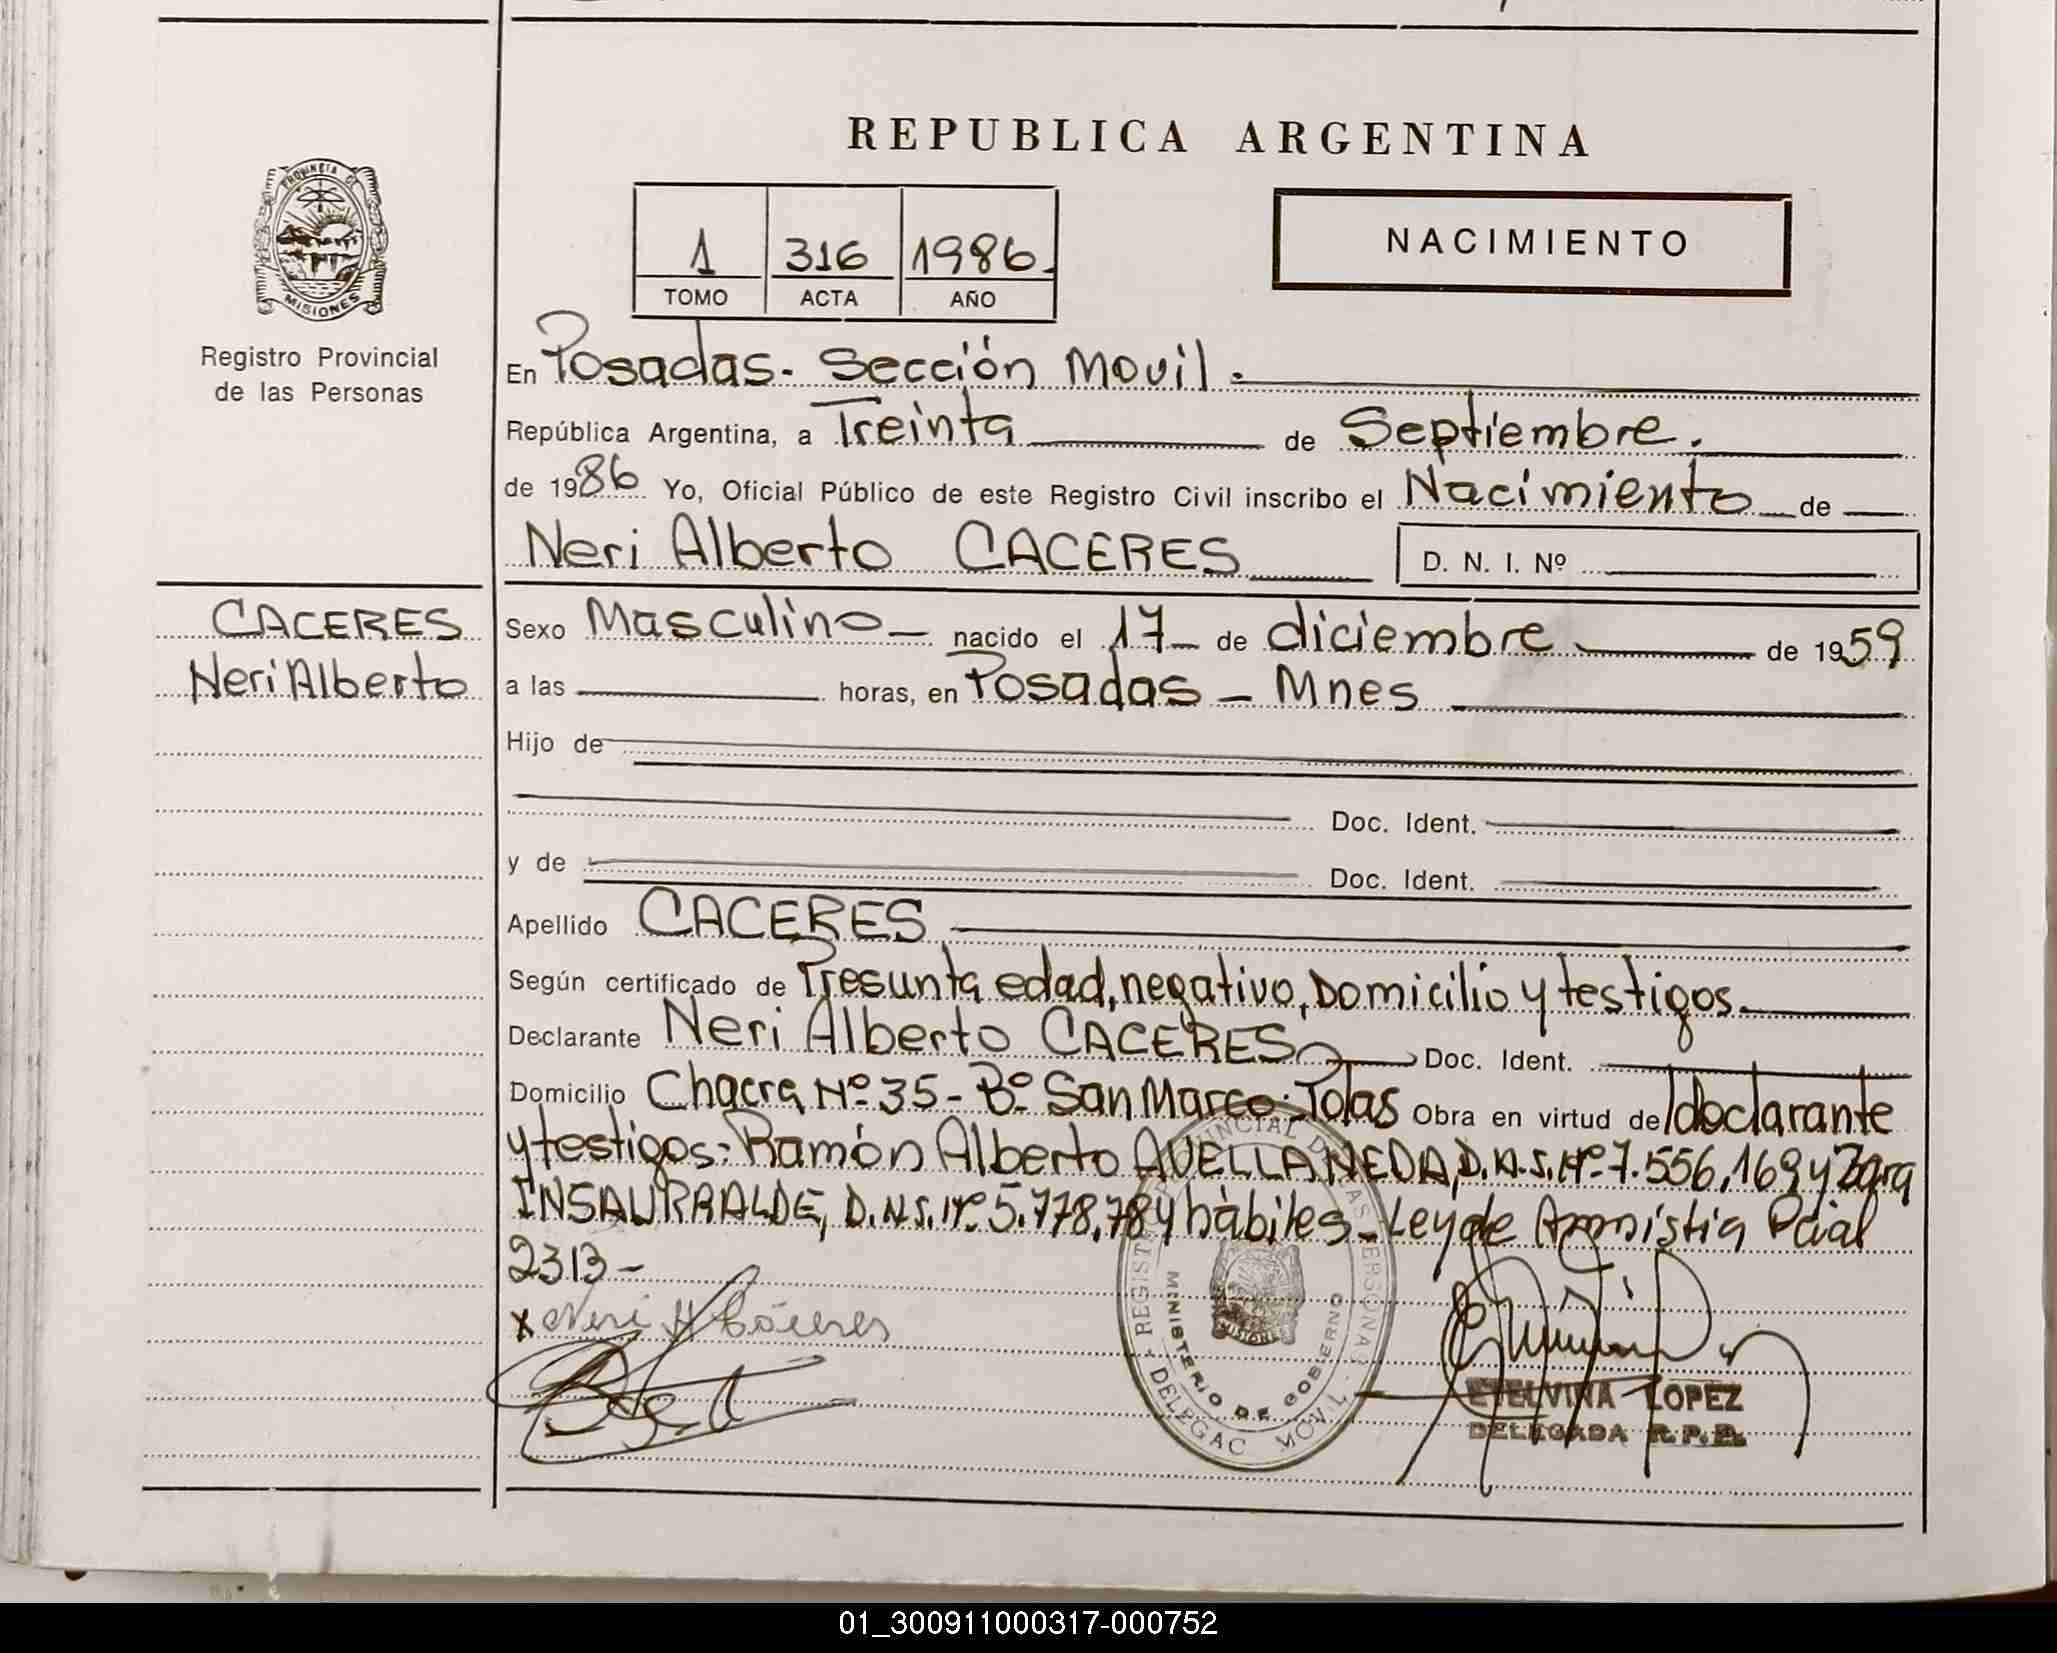 REPUBLICA ARGENTINA
1 316 1986
TOMO ACTA AÑO
NACIMIENTO
PROVINCIA DE
MISIONES
Registro Provincial
de las Personas
En Posadas. Sección Movil.
República Argentina, a Treinta de Septiembre.
de 1986 Yo, Oficial Público de este Registro Civil inscribo el Nacimiento de
Neri Alberto CACERES D. N. I. Nº
CACERES
Neri Alberto
Sexo Masculino nacido el 17 de diciembre de 1959
a las horas, en Posadas - Mnes
Hijo de
Doc. Ident.
y de Doc. Ident.
Apellido CACERES
Según certificado de Presunta edad, negativo, Domicilio y testigos.
Declarante Neri Alberto CACERES Doc. Ident.
Domicilio Chacra Nº 35 - Bº San Marco - Pdas Obra en virtud de l declarante
y testigos: Ramón Alberto AVELLANEDA, D.N.I. Nº 7.556,169 y Zara
INSAURRALDE, D.N.I. Nº 5.778,784 hábiles - Ley de Amnistia Pcial
2313 -
x Neri A Cáceres
MINISTERIO DE GOBIERNO
MISIONES
ETELVINA LOPEZ
DELEGADA R. P. P.
01_300911000317-000752